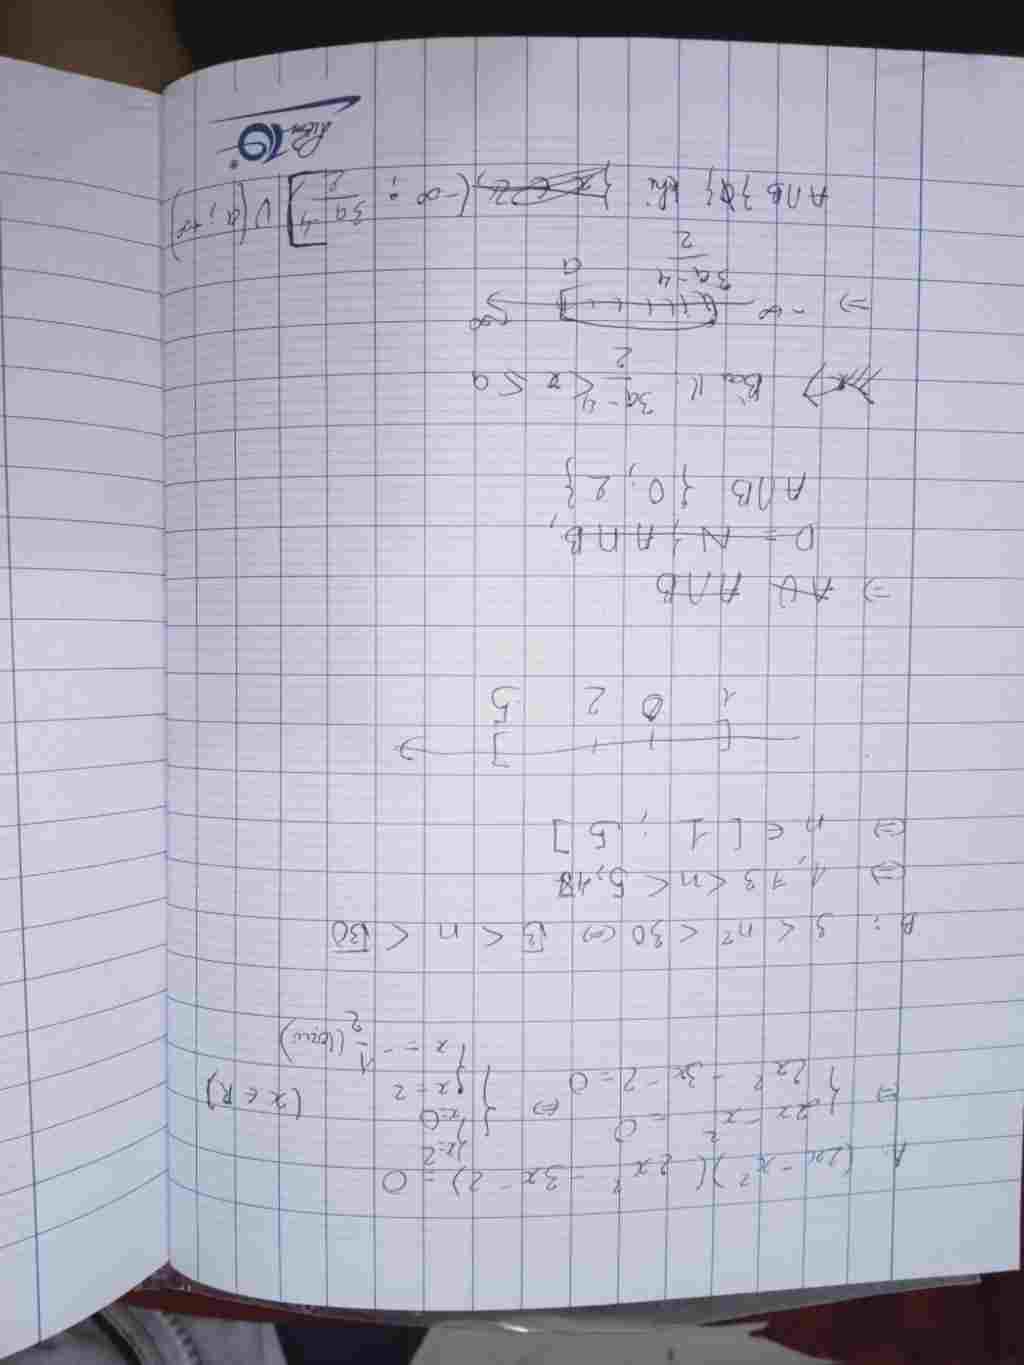 A: (2x - x²)(2x² - 3x - 2) = 0
x=2
⇔ { 2x - x² = 0 ⇔ { x=0 (x ∈ R)
{ 2x² - 3x - 2 = 0 { x = 2
{ x = - 1/2 (loại)
B: 3 < n² < 30 ⇔ √3 < n < √30
⇔ 1,73 < n < 5,48
⇔ n ∈ [ 1 ; 5 ]
1 0 2 5
⇒ A∪ A∩B
D = N, A∩B,
A∩B { 0; 2 }
Bài 11 3a-4/2 < x ≤ a
⇒ -∞ 3a-4/2 a ∞
A∩B khi (-∞ ; 3a-4/2 ] ∪ (a; +∞)
Điểm 10